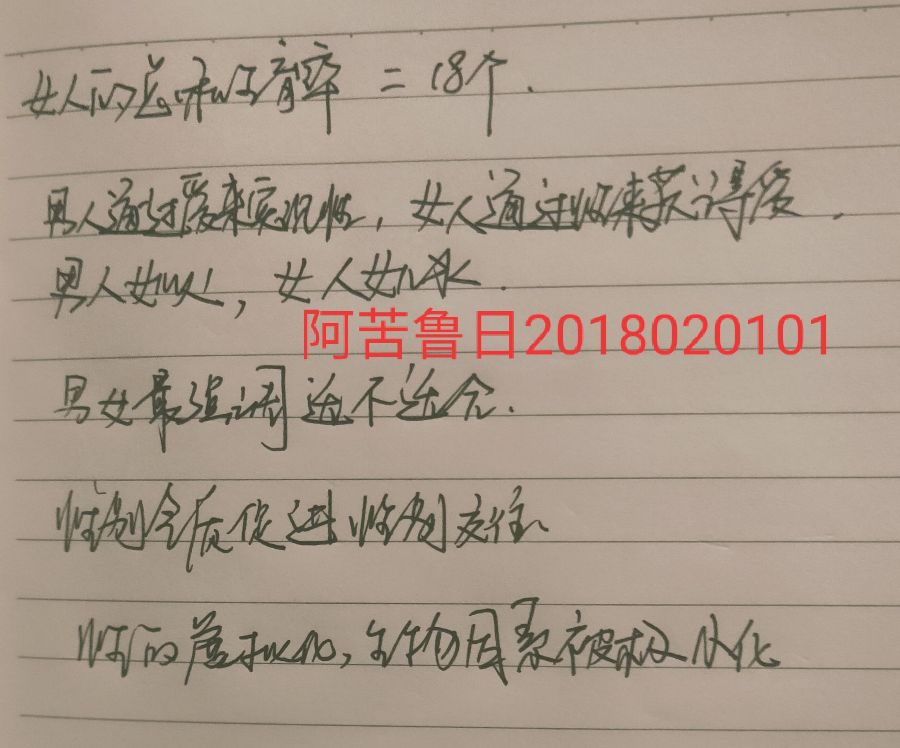 女人的总和生育率 = 18个.
男人通过爱来实现性, 女人通过性来获得爱.
男人如火, 女人如水.
阿苦鲁日2018020101
男女最强调适不适合.
性别气质促进性别交往、
性的虚拟化, 生物因素被极小化